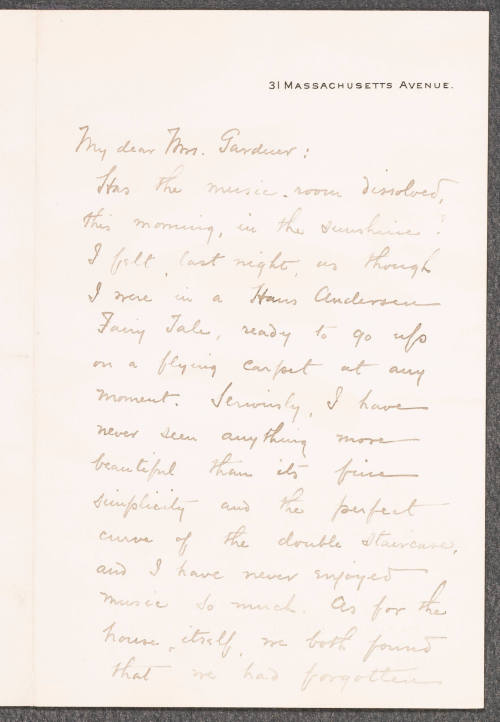 31 MASSACHUSETTS AVENUE.
My dear Mrs. Gardner:
Has the music-room dissolved,
this morning, in the sunshine?
I felt, last night, as though
I were in a Hans Andersen
Fairy Tale, ready to go up
on a flying carpet at any
moment. Seriously, I have
never seen anything more
beautiful than its fine
simplicity and the perfect
curve of the double staircase,
and I have never enjoyed
music so much. As for the
house, itself, we both found
that we had forgotten